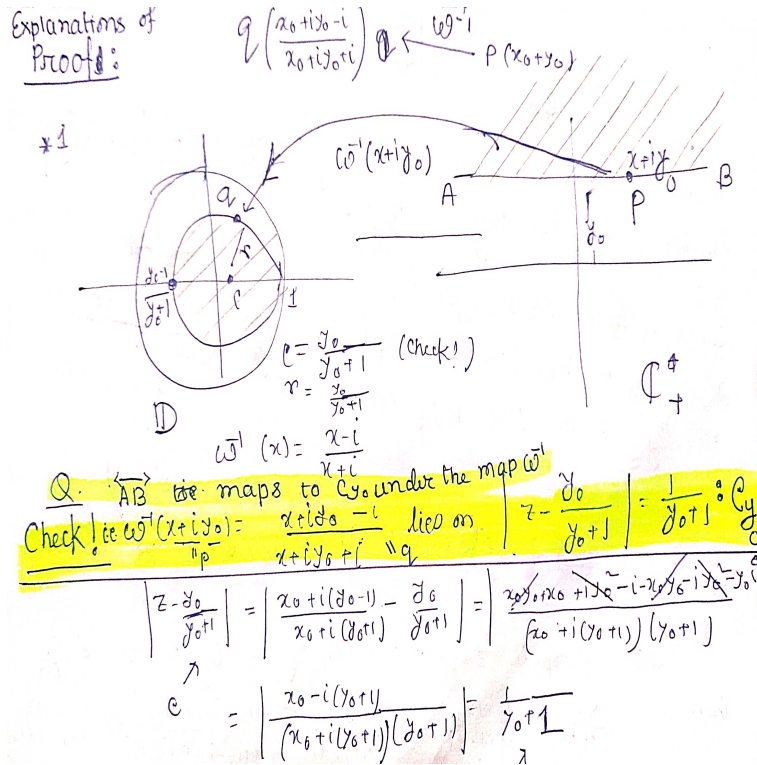 Explanations of
Proofs:
q (x₀+iy₀-i / x₀+iy₀+i) ω⁻¹ P(x₀+y₀)
*1
ω⁻¹(x+iy₀)
x+iy₀
A P B
y₀
q
r
y₀-1 / y₀+1
C 1
C = y₀ / y₀+1 (Check!)
r = y₀ / y₀+1
ℂ₊
D
ω⁻¹(x) = x-i / x+i
Q. AB maps to Cy₀ under the map ω⁻¹
Check! ie ω⁻¹(x+iy₀) = x+iy₀-i / x+iy₀+i lies on |z - y₀ / y₀+1| = 1 / y₀+1 : Cy
"p "q
|z - y₀ / y₀+1| = |x₀+i(y₀-1) / x₀+i(y₀+1) - y₀ / y₀+1| = |x₀y₀+x₀+iy₀²-i-x₀y₀-iy₀²-y₀i / (x₀+i(y₀+1))(y₀+1)|
C
= |x₀-i(y₀+1) / (x₀+i(y₀+1))(y₀+1)| = 1 / y₀+1